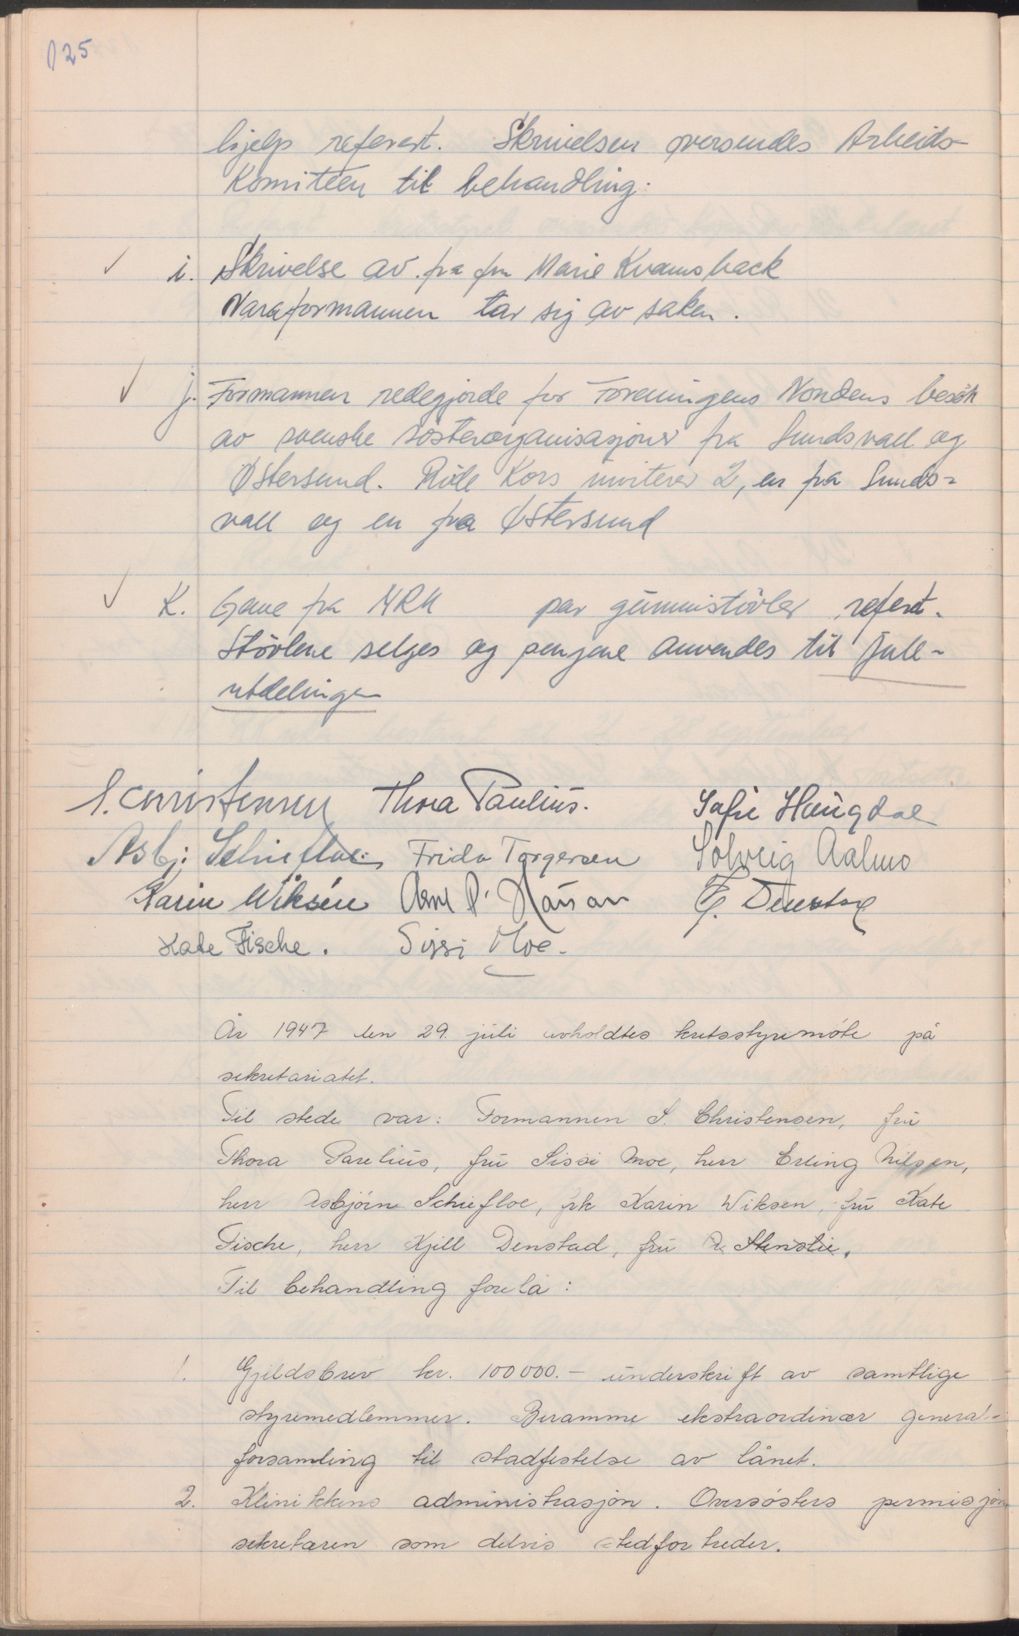 125
hjelp referert. Skrivelsen oversendes Arbeids-
Komiteen til behandling.
i. Skrivelse av fra fru Marie Kvamsback
Varaformannen tar sig av saken.
j. Formannen redegjorde for Foreningens Nordens besök
av svenske sösterorganisasjoner fra Sundsvall og
Östersund. Röde Kors inviterer 2, en fra Sunds-
vall og en fra Östersund
K. Gave fra NRK par gummistövler refert.
Stövlene selges og pengene anvendes til Jule-
utdelingen
S. Christensen Thora Paulius. Sofie Haugdal
Asbj. Schiefloe. Frida Torgersen Solveig Aalmo
Karin Wiksén Denstad
Kate Fische. Sissi Moe.
År 1947 den 29. juli avholdtes kretsstyremöte på
sekretariatet.
Til stede var: Formannen S. Christensen, fru
Thora Parelius, fru Sissi Moe, herr Erling Nilsen,
herr Asbjörn Schiefloe, frk Karin Wiksen, fru Kate
Fische, herr Kjell Denstad, fru
Til behandling forelå:
1. Gjeldsbrev kr. 100 000.- underskrift av samtlige
styremedlemmer. Beramme ekstraordinær general-
forsamling til stadfestelse av lånet.
2. Klinikkens administrasjon. Oversösters permisjon
sekretæren som delvis stedfortreder.